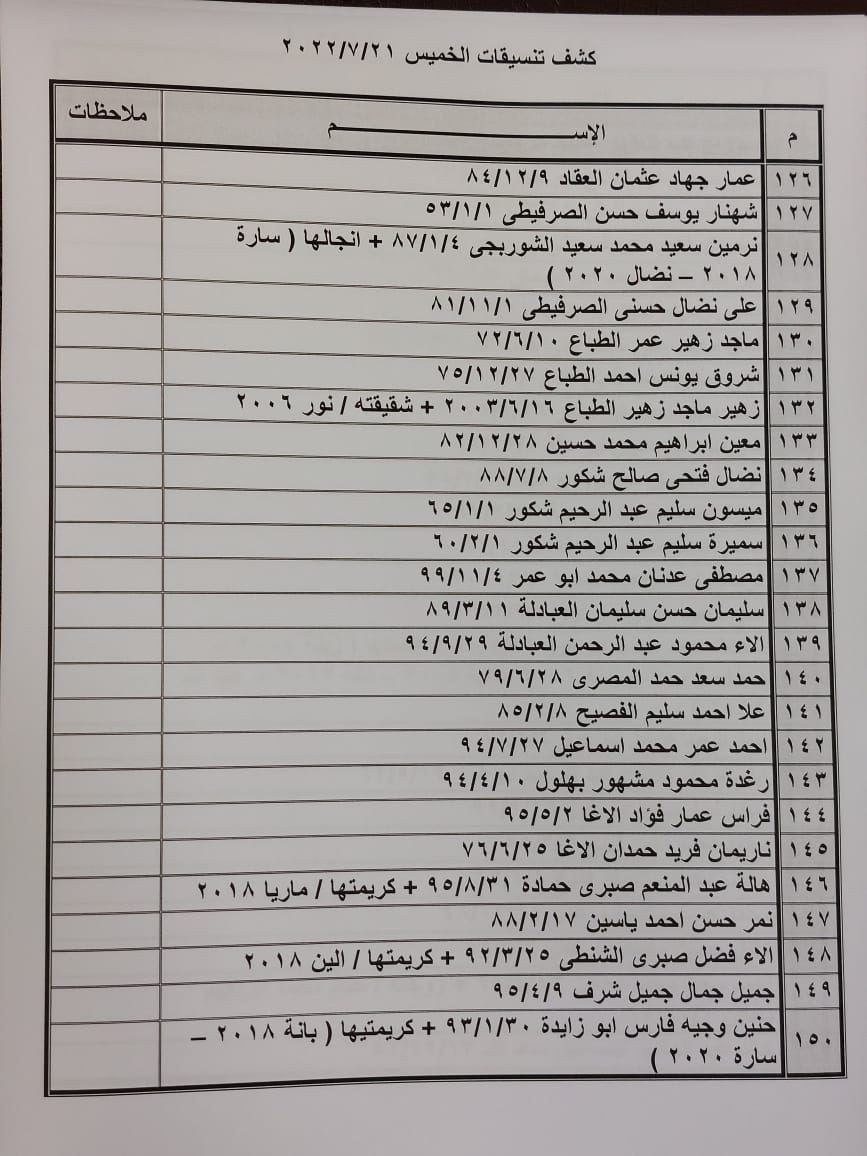 كشف تنسيقات الخميس ٢٠٢٢/٧/٢١
م الإســـــــــم ملاحظات
١٢٦ عمار جهاد عثمان العقاد ٨٤/١٢/٩
١٢٧ شهنار يوسف حسن الصرفيطى ٥٣/١/١
١٢٨ نرمين سعيد محمد سعيد الشوربجى ٨٧/١/٤ + انجالها ( سارة
٢٠١٨ – نضال ٢٠٢٠ )
١٢٩ على نضال حسنى الصرفيطى ٨١/١١/١
١٣٠ ماجد زهير عمر الطباع ٧٢/٦/١٠
١٣١ شروق يونس احمد الطباع ٧٥/١٢/٢٧
١٣٢ زهير ماجد زهير الطباع ٢٠٠٣/٦/١٦ + شقيقته / نور ٢٠٠٦
١٣٣ معين ابراهيم محمد حسين ٨٢/١٢/٢٨
١٣٤ نضال فتحى صالح شكور ٨٨/٧/٨
١٣٥ ميسون سليم عبد الرحيم شكور ٦٥/١/١
١٣٦ سميرة سليم عبد الرحيم شكور ٦٠/٢/١
١٣٧ مصطفى عدنان محمد ابو عمر ٩٩/١١/٤
١٣٨ سليمان حسن سليمان العبادلة ٨٩/٣/١١
١٣٩ الاء محمود عبد الرحمن العبادلة ٩٤/٩/٢٩
١٤٠ حمد سعد حمد المصرى ٧٩/٦/٢٨
١٤١ علا احمد سليم الفصيح ٨٥/٢/٨
١٤٢ احمد عمر محمد اسماعيل ٩٤/٧/٢٧
١٤٣ رغدة محمود مشهور بهلول ٩٤/٤/١٠
١٤٤ فراس عمار فؤاد الاغا ٩٥/٥/٢
١٤٥ ناريمان فريد حمدان الاغا ٧٦/٦/٢٥
١٤٦ هالة عبد المنعم صبرى حمادة ٩٥/٨/٣١ + كريمتها / ماريا ٢٠١٨
١٤٧ نمر حسن احمد ياسين ٨٨/٢/١٧
١٤٨ الاء فضل صبرى الشنطى ٩٢/٣/٢٥ + كريمتها / الين ٢٠١٨
١٤٩ جميل جمال جميل شرف ٩٥/٤/٩
١٥٠ حنين وجيه فارس ابو زايدة ٩٣/١/٣٠ + كريمتيها ( بانة ٢٠١٨ –
سارة ٢٠٢٠ )